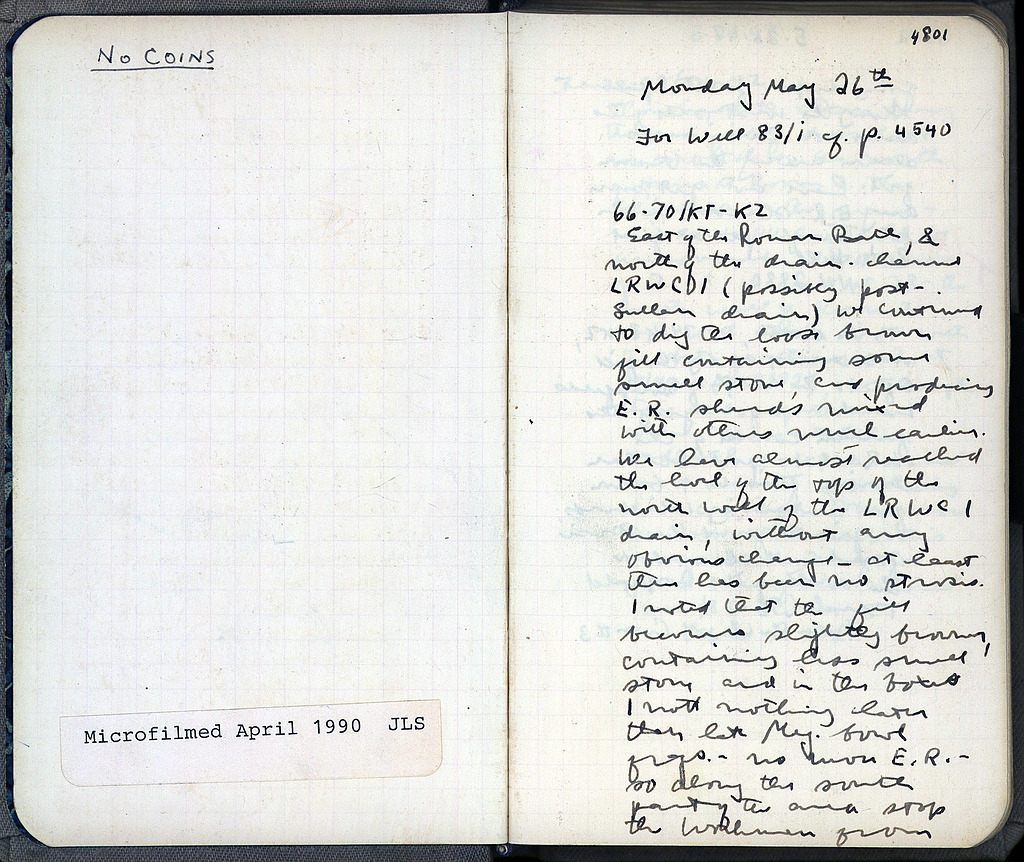 No COINS
Microfilmed April 1990 JLS
4801
Monday May 26th
For Well 83/i cf. p. 4540
66-70/KT-KZ
East of the Roman Bath, &
north of the drain channel
LRWCD1 (possibly post-
Sullan drain) we continued
to dig the loose brown
fill containing some
small stone, and producing
E.R. sherds mixed
with others much earlier.
We have almost reached
the level of the top of the
north wall of the LRWC 1
drain, without any
obvious change - at least
there has been no strosis.
I noted that the fill
becomes slightly browner,
containing less small
stone and in the boxes
I note nothing later
than late Meg. bowl
frags. - no more E.R. -
so along the south
part of the area stop
the workmen from